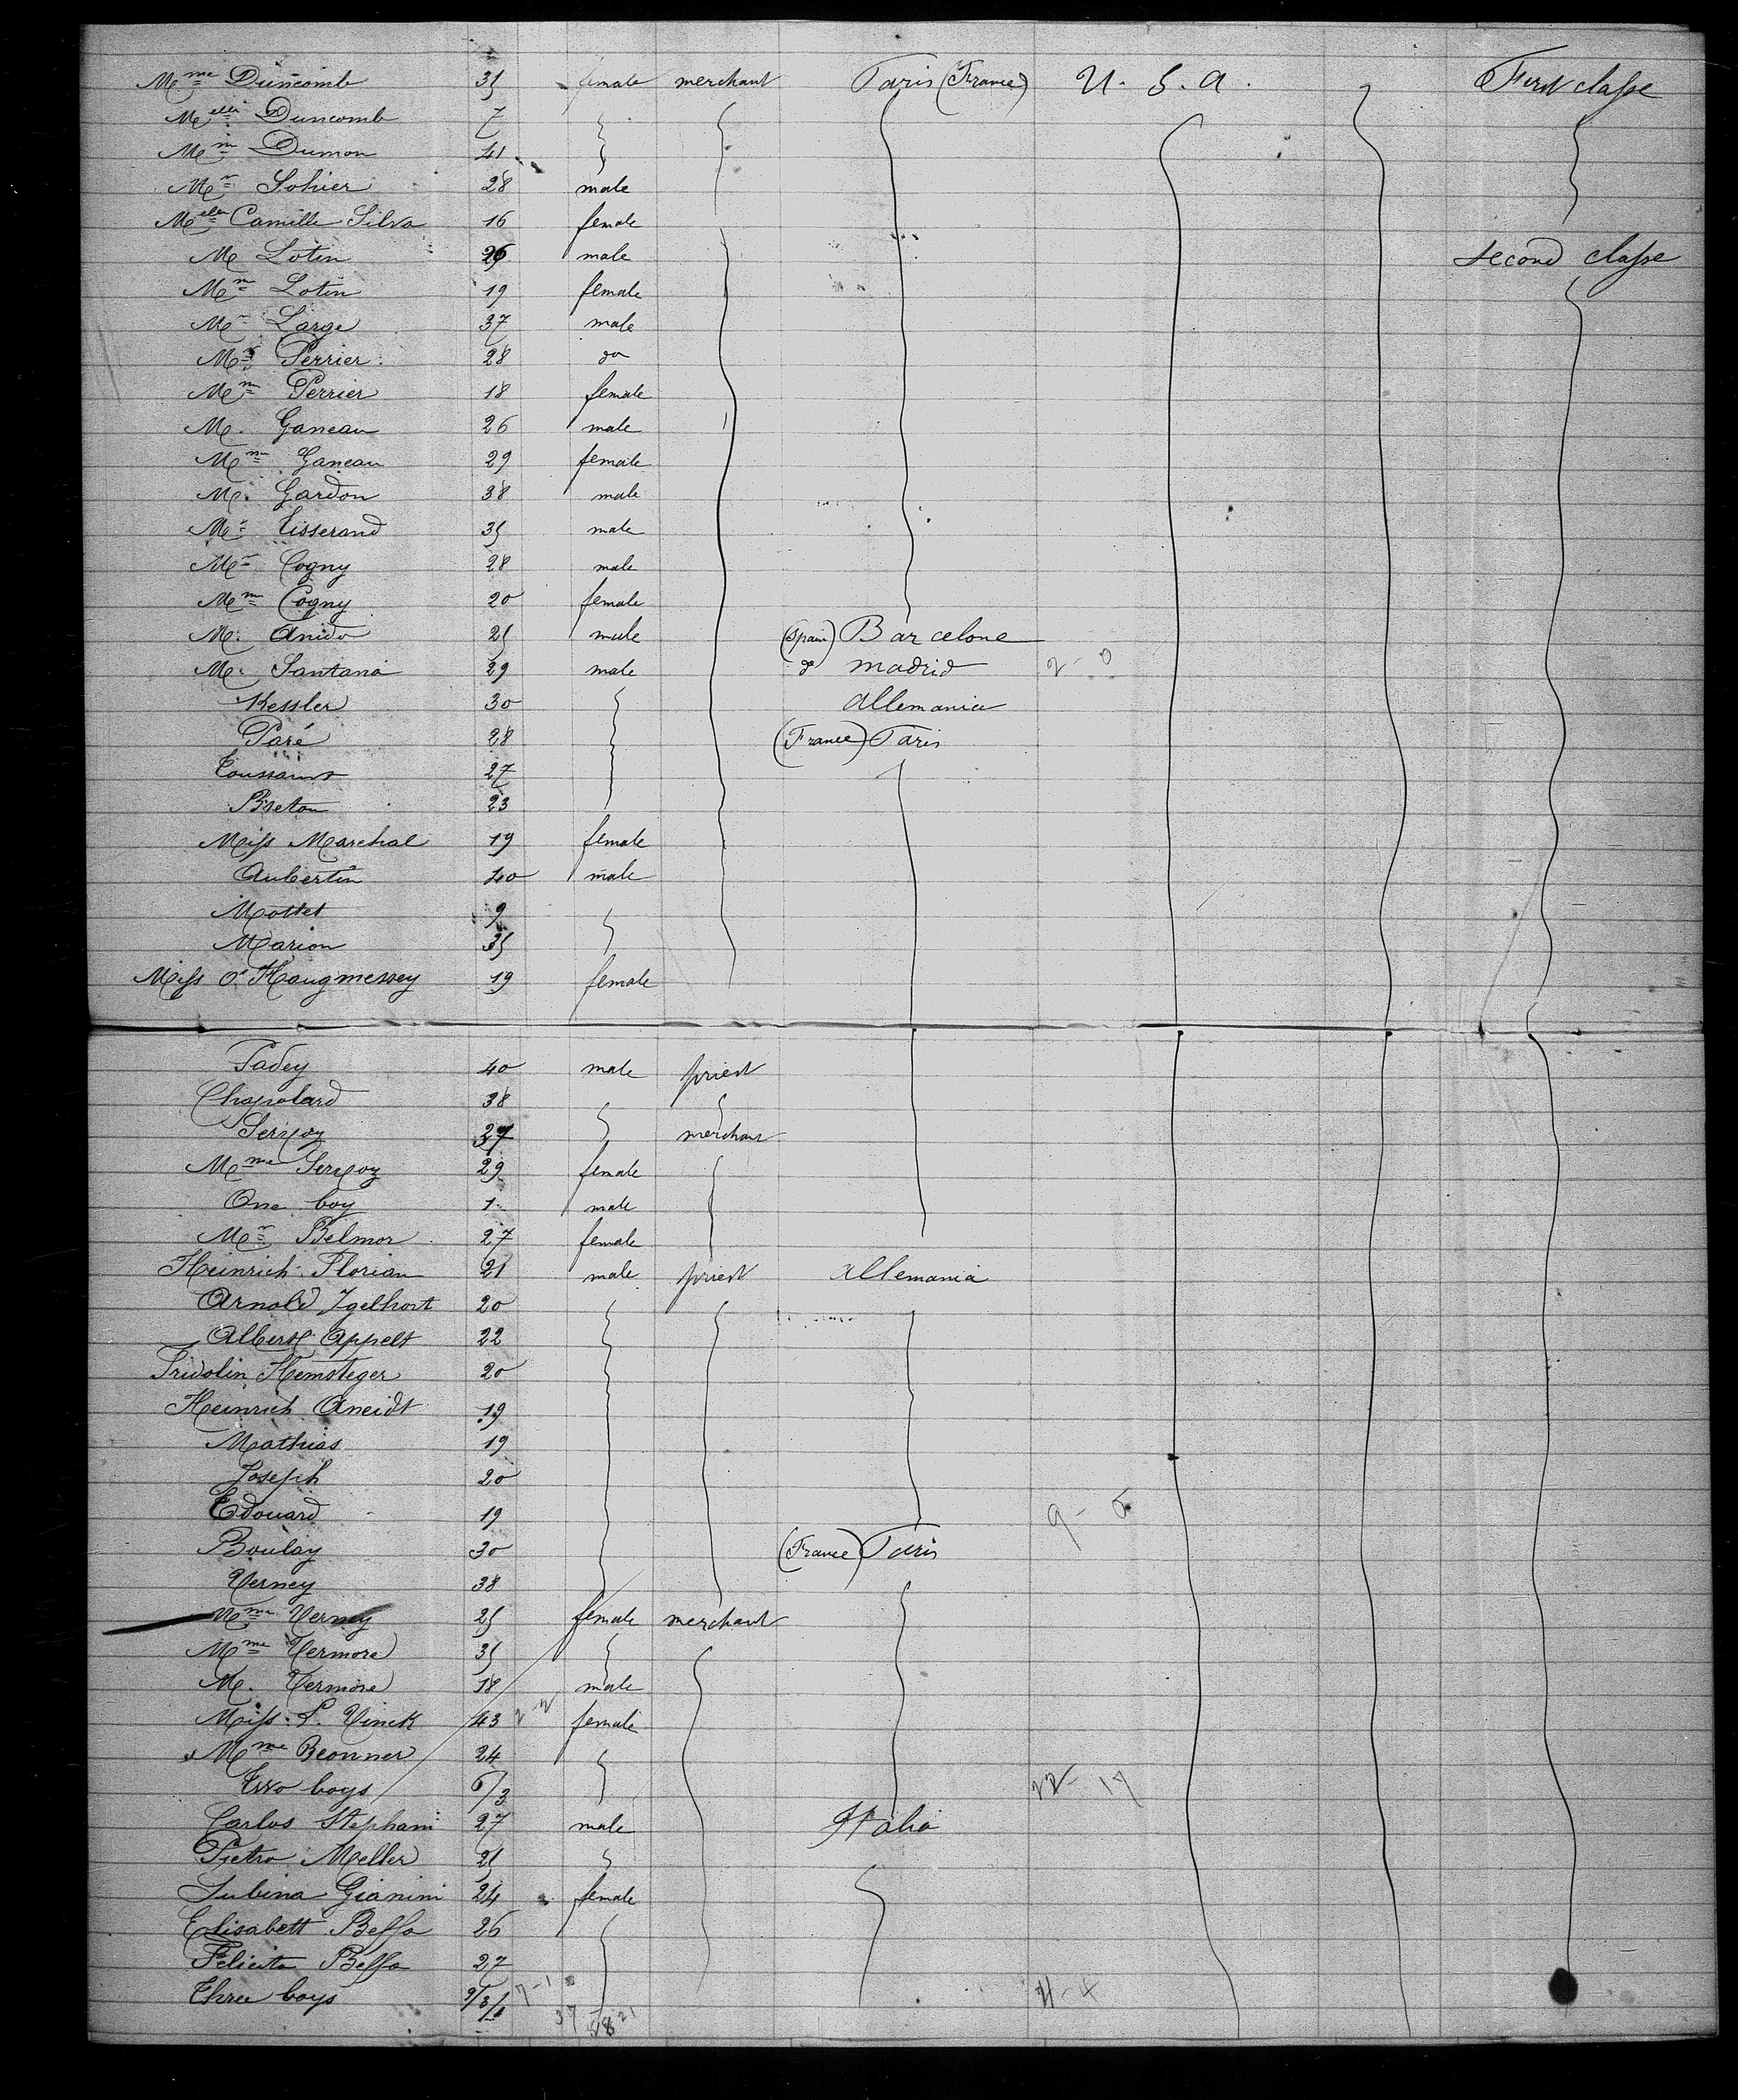 Mme Duncomb 35 female merchant Paris (France) U. S. A. First classe
Melle Duncomb 7
Mm Dumon 41
Mr Sohier 28 male
Melle Camille Silva 16 female
M Lotin 26 male second classe
Mm Lotin 19 female
Mr Large 37 male
Mr Perrier 28 do
Mm Perrier 18 female
M. Ganeau 26 male
Mm Ganeau 29 female
M. Gardon 38 male
Mr Tisserand 35 male
Mr Cogny 28 male
Mm Cogny 20 female
M. Anido 25 male (Spain) Barcelone
M. Santana 29 male do madrid 2-0
Kessler 30 allemania
Paré 28 (France) Paris
Toussaint 27
Breton 23
Miss Marchal 19 female
Aubertin 40 male
Mottet 9
Marion 35
Miss O. Haugmessey 19 female
Padey 40 male priest
Chapolard 38
27 merchant
Mme 29 female
One boy 1 male
Mr Belmor 27 female
Heinrich Florian 21 male priest allemania
Arnold Igelhort 20
Albert Appelt 22
Fridolin Hemsteger 20
Heinrich Aneidt 19
Mathias 19
Joseph 20
Edouard 19 9-5
Boulay 30 (France) Paris
Verney 38
Mme Verney 25 female merchant
Mme Vermore 35
M. Vermore 18 male
Miss L. Vinck 43 2-2 female
Mme Beonner 24
Two boys 6/3 22-17
Carlos Stephani 27 male Italia
Pietro Meller 25
Lubina Gianini 24 female
Elisabett Beffa 26
Felicita Beffa 27
Three boys 9/3/1 7-1 4-4
37 21
58